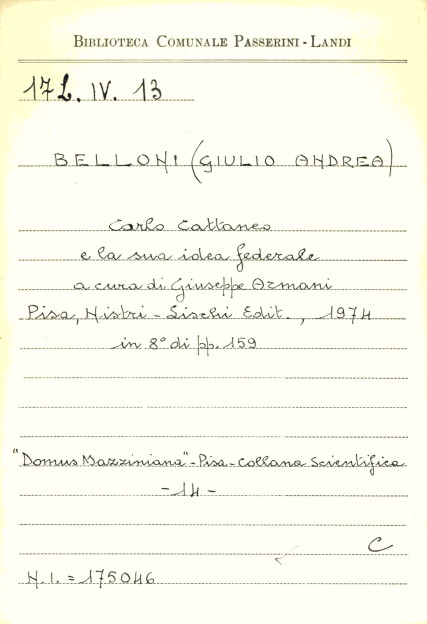 BIBLIOTECA COMUNALE PASSERINI - LANDI
17L. IV. 13
BELLONI (GIULIO ANDREA)
Carlo Cattaneo
e la sua idea federale
a cura di Giuseppe Armani
Pisa, Nistri - Lischi Edit. , 1974
in 8° di pp. 159
"Domus Mazziniana" - Pisa - Collana Scientifica
- 14 -
C
N. I. = 175046